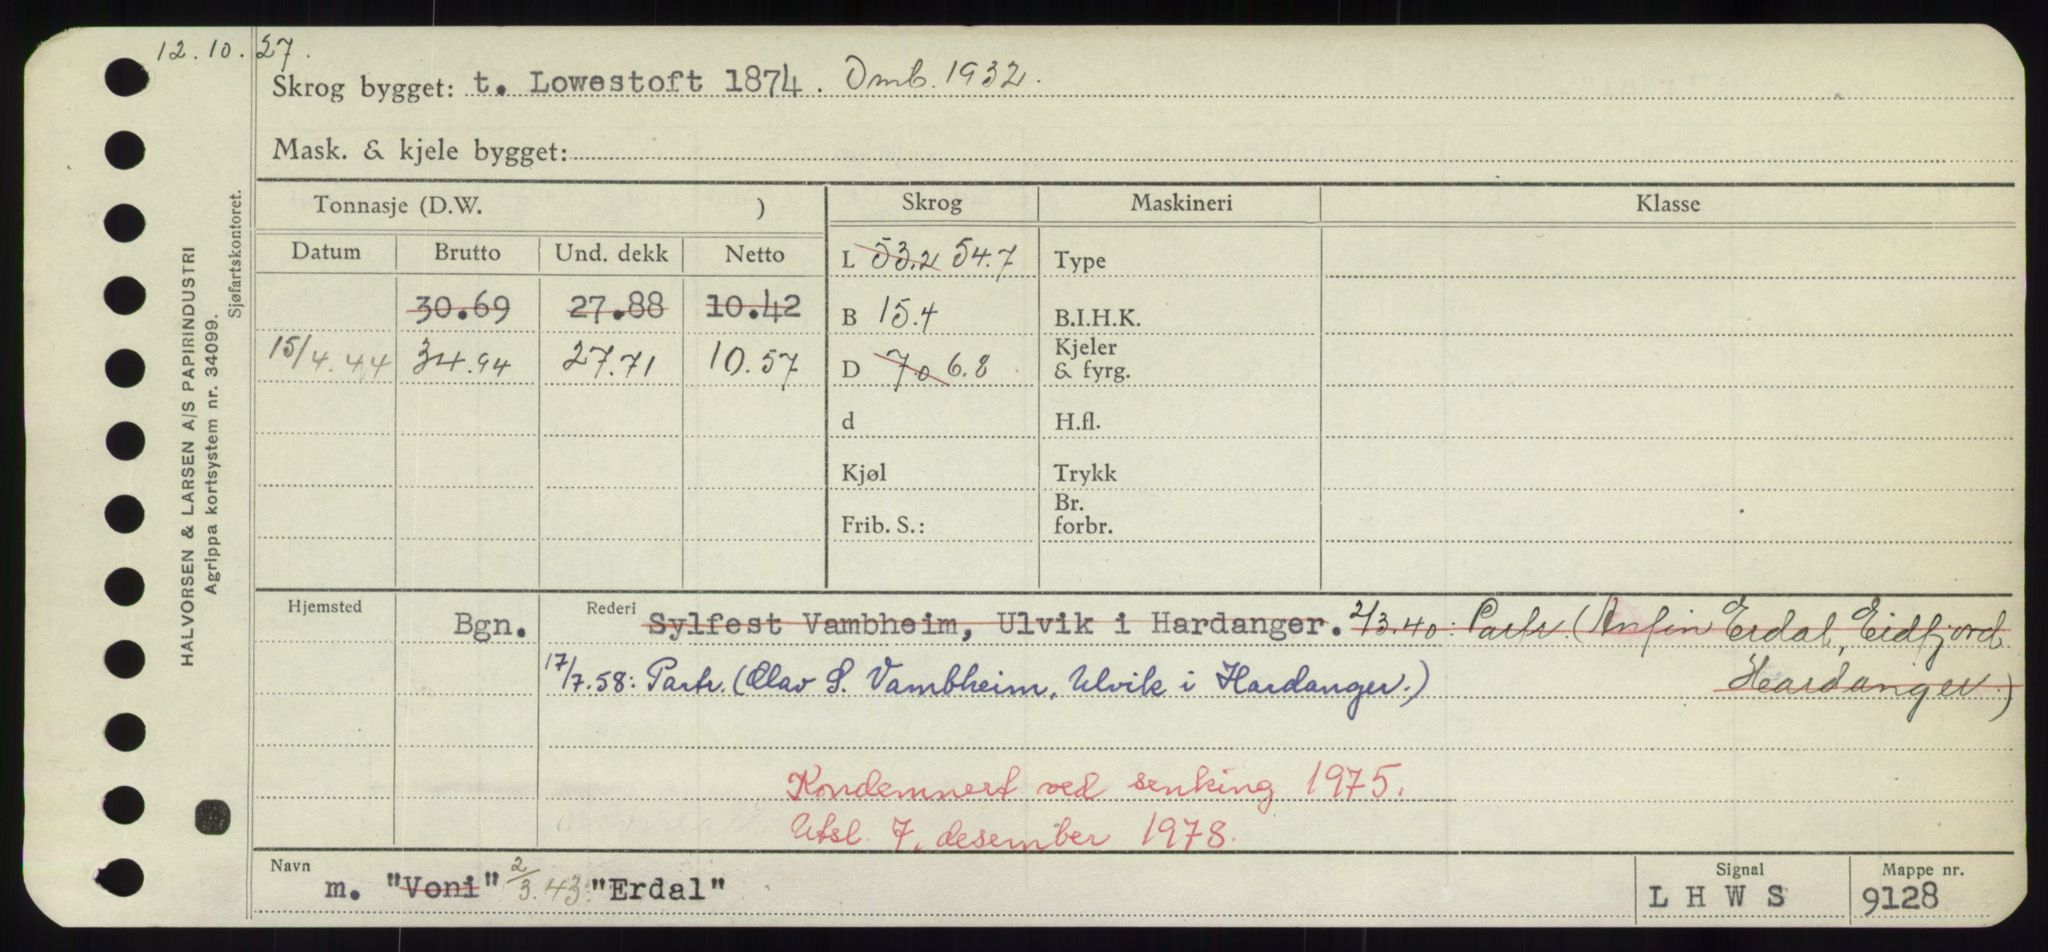 12.10.27.
Skrog bygget: t. Lowestoft 1874. Omb. 1932.
Mask. & kjele bygget:
Tonnasje (D.W. )
Skrog
Maskineri
Klasse
Datum Brutto Und. dekk Netto
L 53.2 54.7
Type
30.69 27.88 10.42
B 15.4
B.I.H.K.
15/4.44 34.94 27.71 10.57
D 7.0 6.8
Kjeler
& fyrg.
d
H.fl.
Kjøl
Trykk
Frib. S.:
Br.
forbr.
Hjemsted
Bgn.
Rederi
Sylfest Vambheim, Ulvik i Hardanger. 2/3.40: Partr. (Anfin Erdal, Eidfjord
Hardanger.)
17/7.58: Partr. (Olav S. Vambheim, Ulvik i Hardanger.)
Kondemnert ved senking 1975.
Utsl. 7. desember 1978.
Navn
m. "Voni" 2/3.43: "Erdal"
Signal
L H W S
Mappe nr.
9128
HALVORSEN & LARSEN A/S PAPIRINDUSTRI
Agrippa kortsystem nr. 34099.
Sjøfartskontoret.